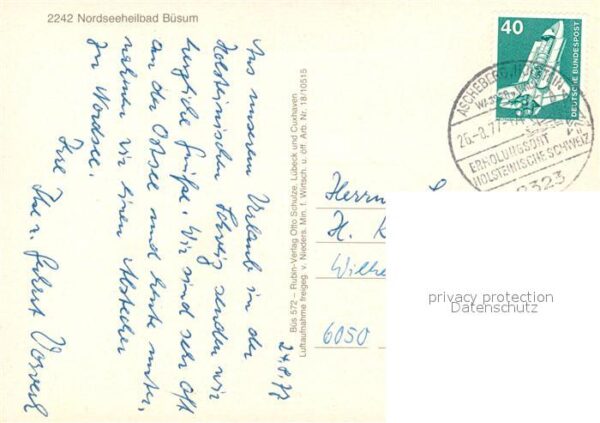 2242 Nordseeheilbad Büsum
Aus unserem Urlaub in der
Holsteinischen Schweiz senden wir
herzliche Grüße. Wir sind sehr oft
an der Ostsee und heute unter-
nahmen wir einen Abstecher
zur Nordsee.
Ihre
u.
24.8.77
Büs 572 – Rubin-Verlag Otto Schulze, Lübeck und Cuxhaven
Luftaufnahme freigeg. v. Nieders. Min. f. Wirtsch. u. öff. Arb. Nr. 18/10515
40
DEUTSCHE BUNDESPOST
ASCHEBERG, HOLSTEIN
26.-8.77-
ERHOLUNGSORT
HOLSTEINISCHE SCHWEIZ
2323
Herrn
H. K
Wilhe
6050
privacy protection
Datenschutz